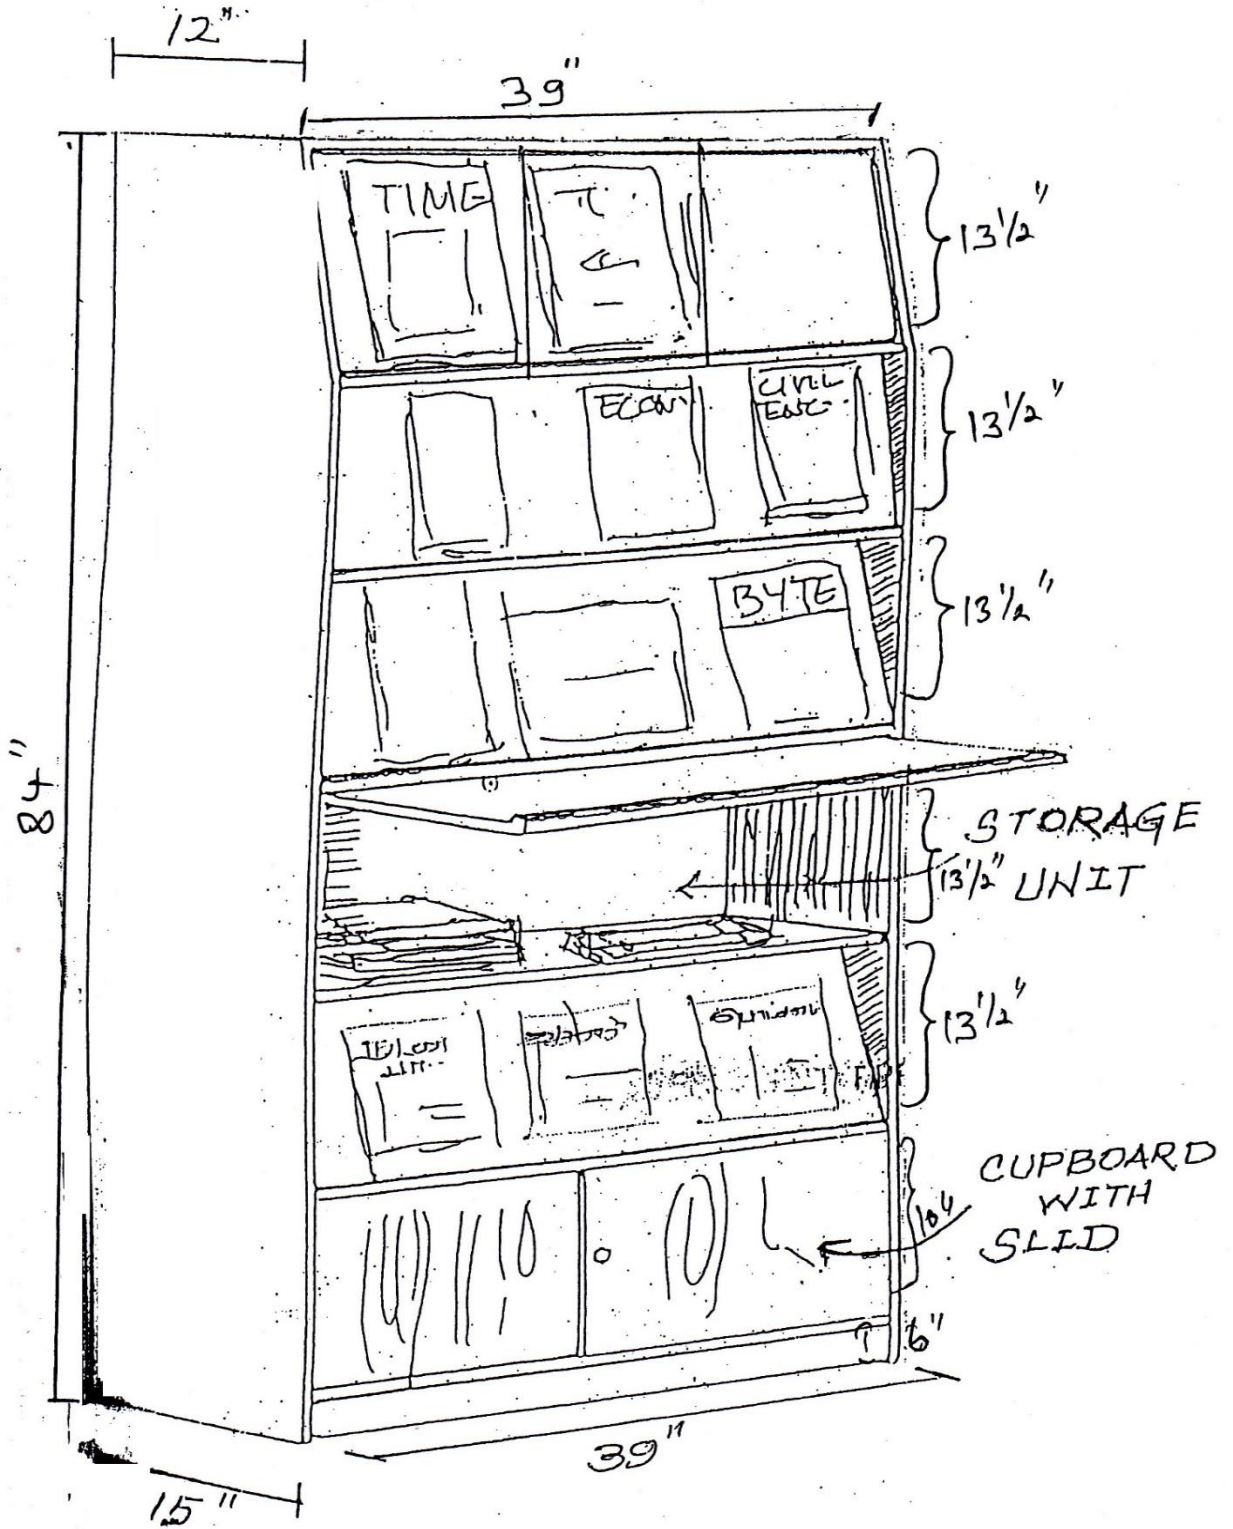 12"
39"
TIME
13 1/2"
ECON
CIVIL
ENG.
13 1/2"
BYTE
13 1/2"
84"
STORAGE
13 1/2" UNIT
13 1/2"
CUPBOARD
WITH
10"
SLID
6"
39"
15"